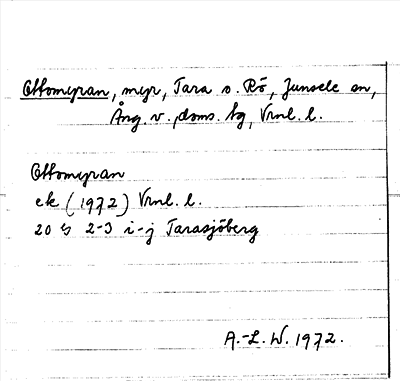 Ottomyran, myr, Tara o. Rö, Junsele sn,
Ång. v. doms. tg, Vrnl. l.
Ottomyran
ek (1972) Vrnl. l.
20 G 2-3 i-j Tarasjöberg
A.-L. W. 1972.